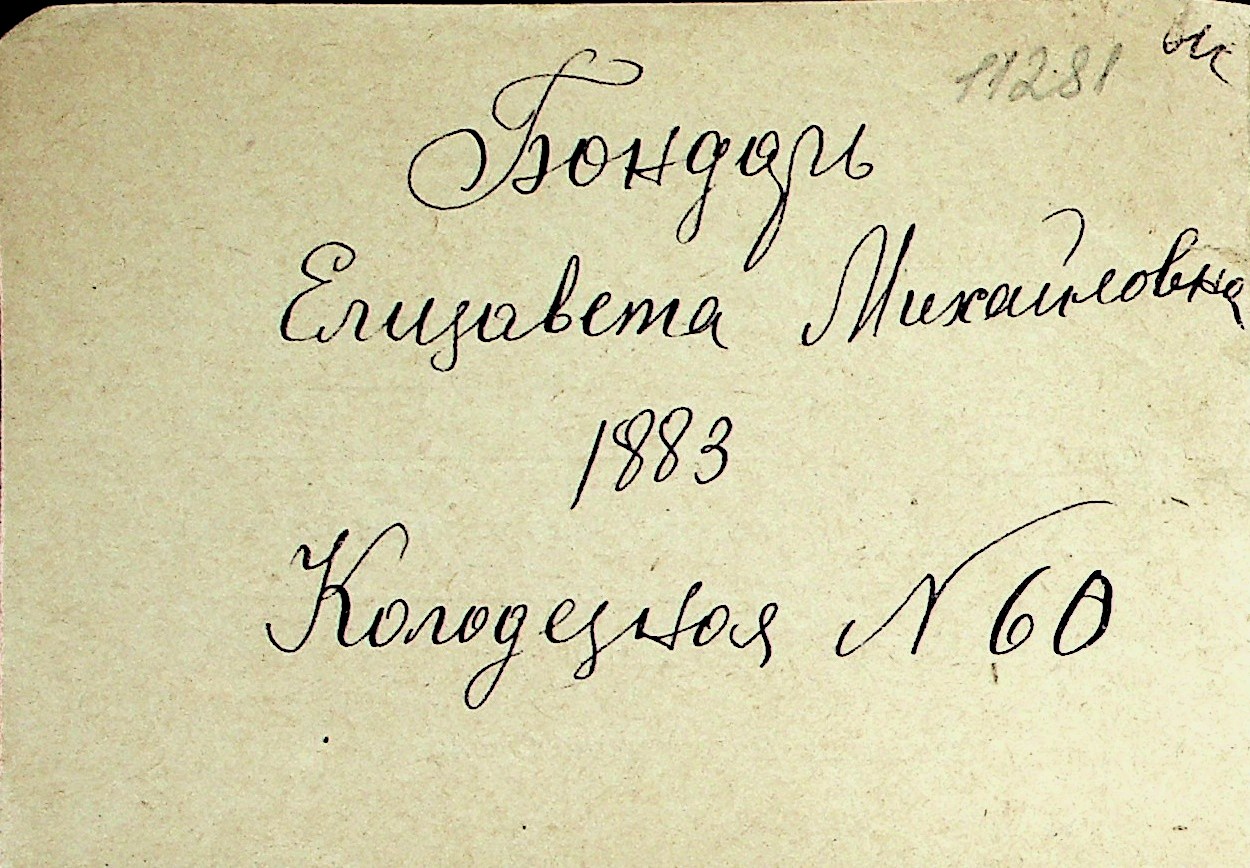 11281
Бондарь
Елизавета Михайловна
1883
Колодезная N 60